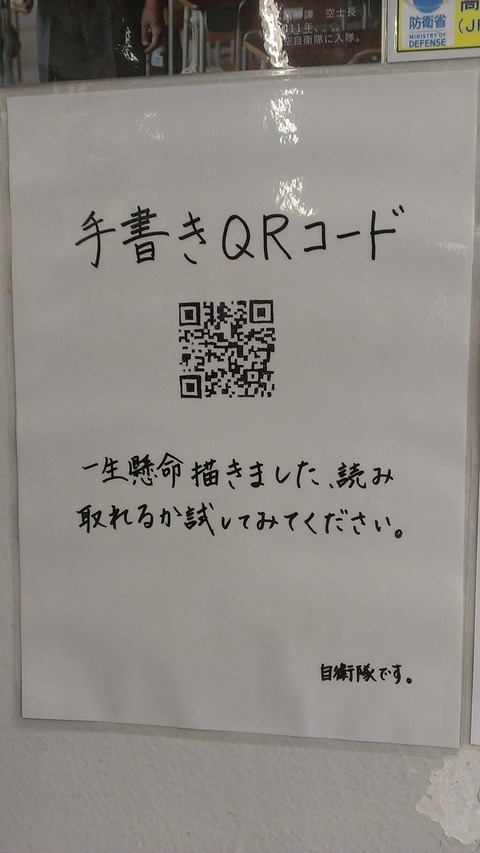 空士長
011年、
空自衛隊に入隊。
防衛省
MINISTRY OF
DEFENSE
手書きQRコード
一生懸命描きました、読み
取れるか試してみてください。
自衛隊です。